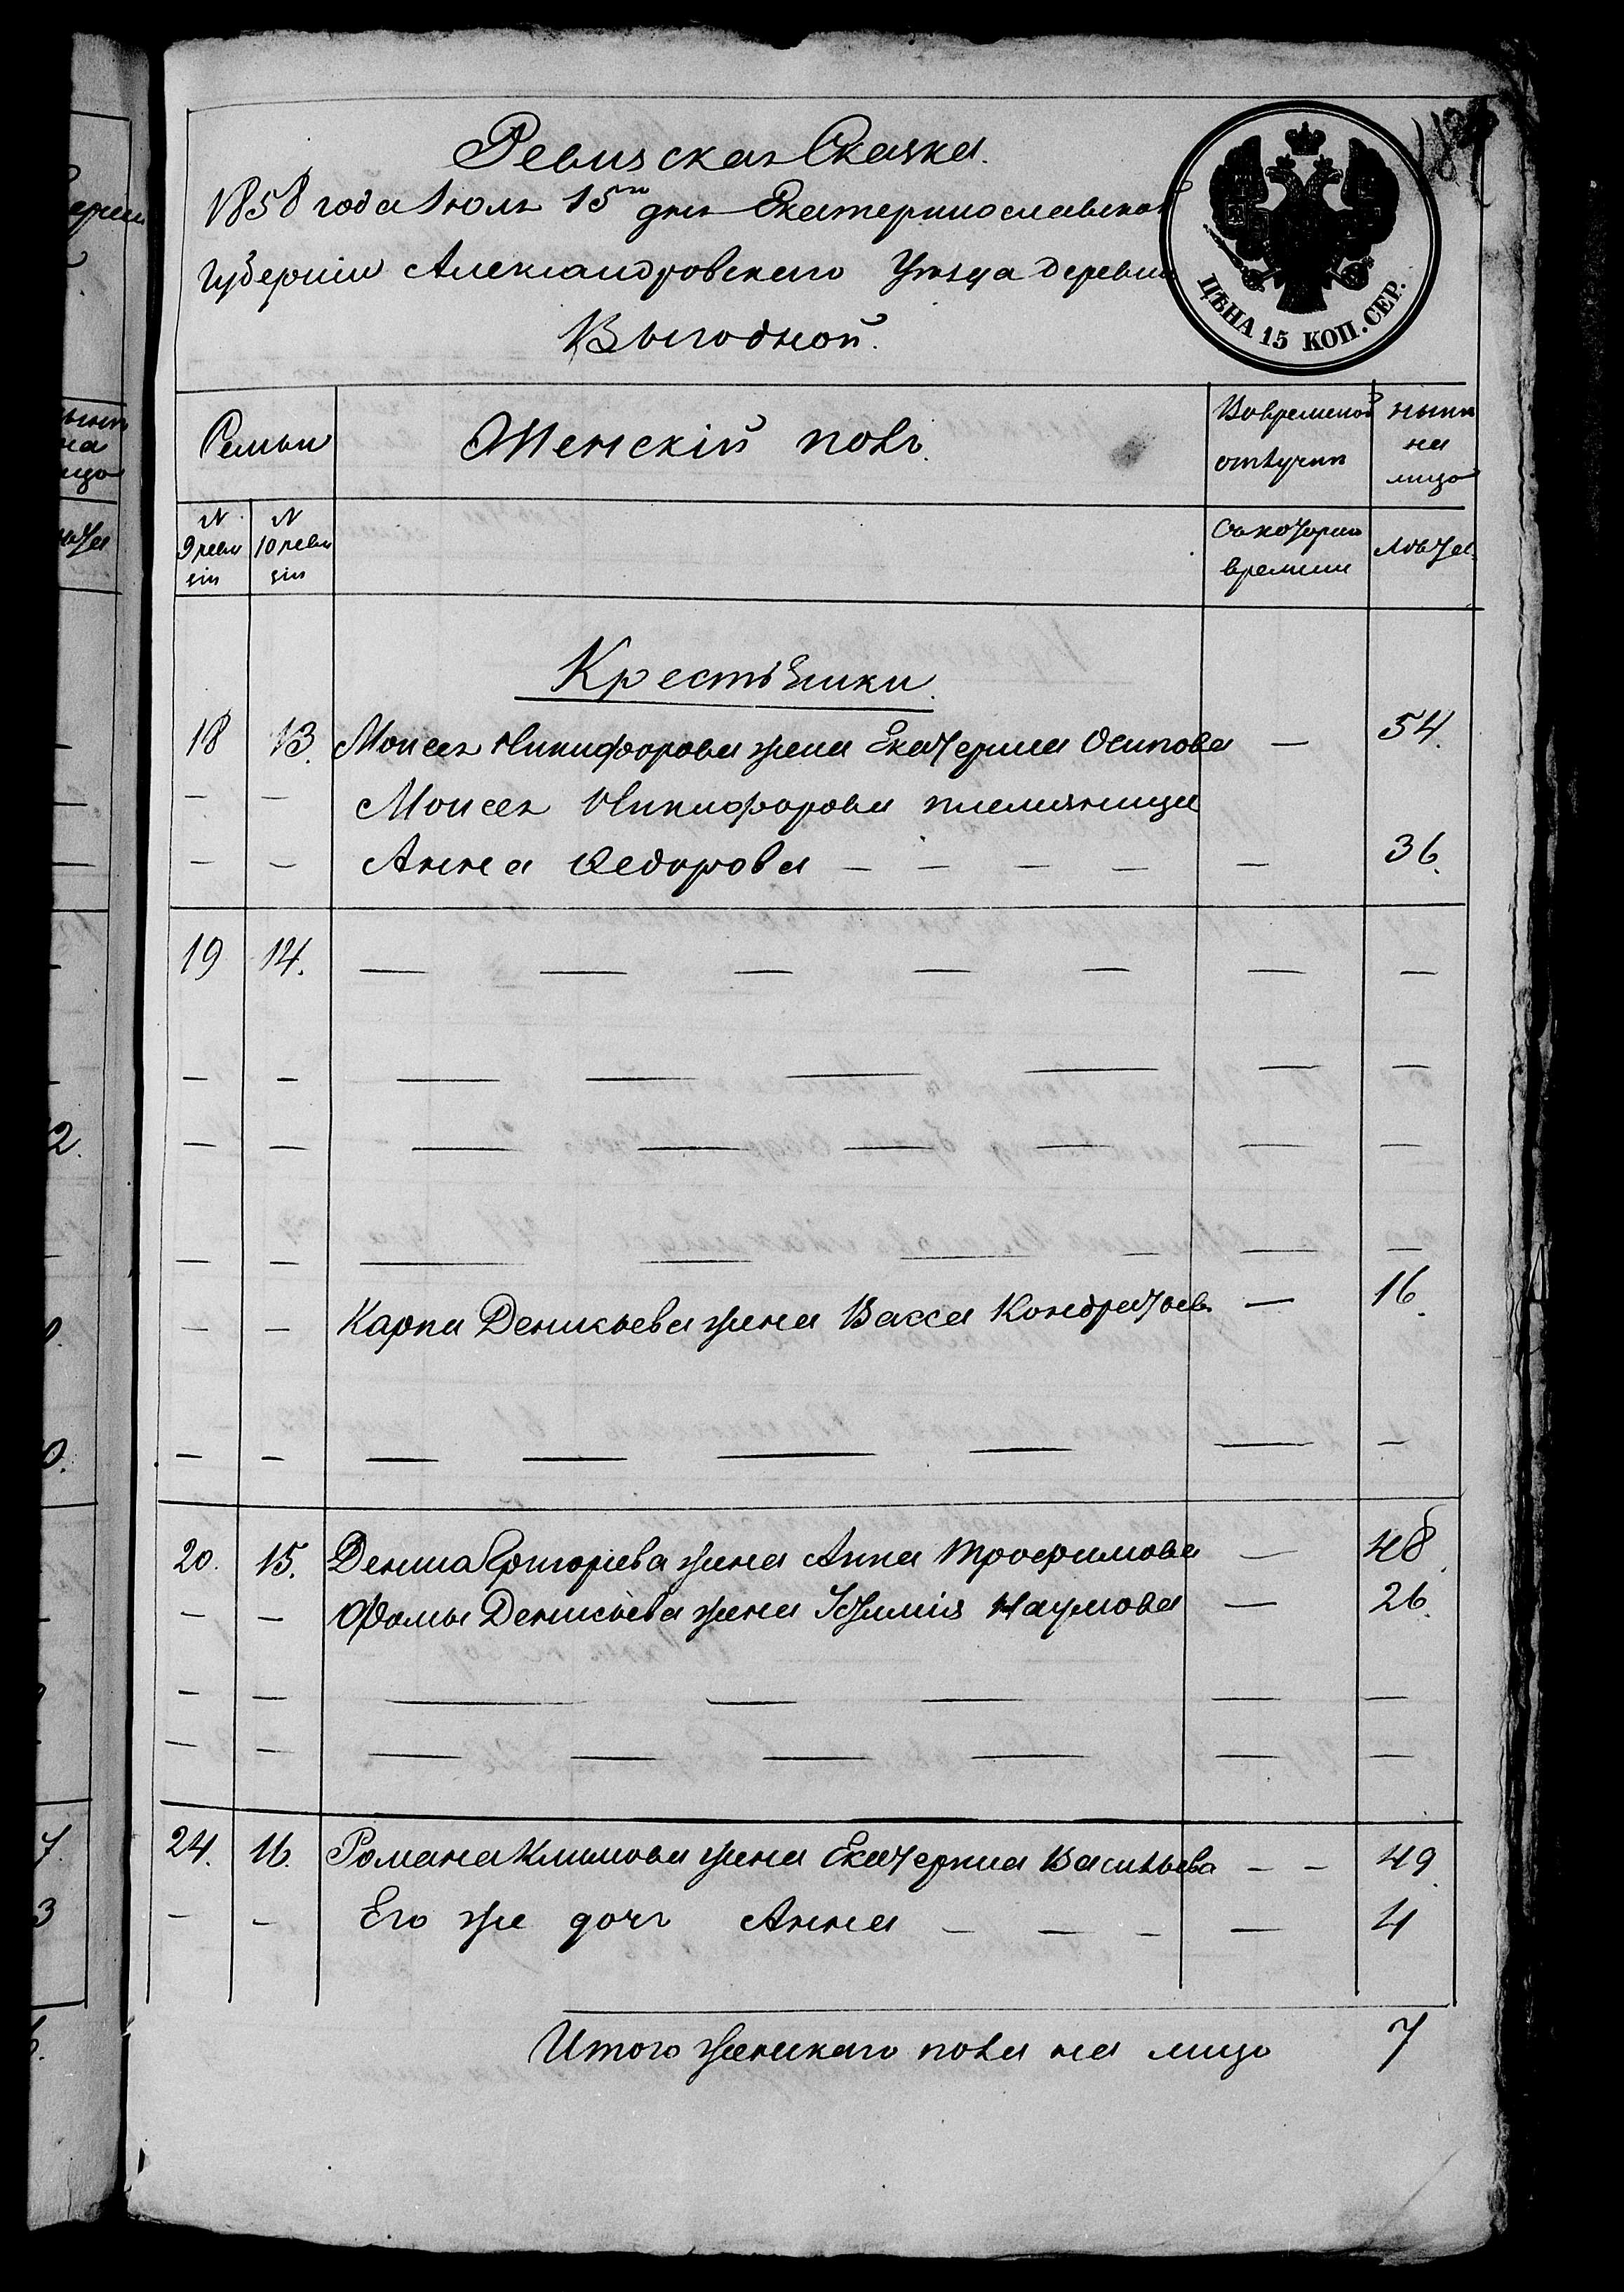 Ревизская Сказка.
1858 года Июля 15го дня Екатеринославской
Губерніи Александровскаго Уѣзда деревни
Выгодной.
ЦѢНА 15 КОП. СЕР.
Семьи
Женскій полъ.
Во временной отлучкѣ
нынѣ на лицо
N 9 реви зіи
N 10 реви зіи
Съ котораго времени
Лѣта.
Крестьянки.
18 13. Моисея Никифорова жена Екатерина Осипова — 54.
— — Моисея Никифорова племянница
— — Анна Федорова — — — — — 36.
19 14. — — — — — — —
— — — — — — — —
— — — — — — — —
— — — — — — — —
— — Карпа Денисьева жена Васса Кондратьев. — 16.
— — — — — — — —
20. 15. Дениса Григорьева жена Анна Трофимова — 48
— — Фомы Денисьева жена Ефимія Наумова — 26.
— — — — — — —
— — — — — — — —
24. 16. Романа Климова жена Екатерина Васильева — — 49.
— — Его же дочь Анна — — — — 4
Итого женскаго пола на лицо 7